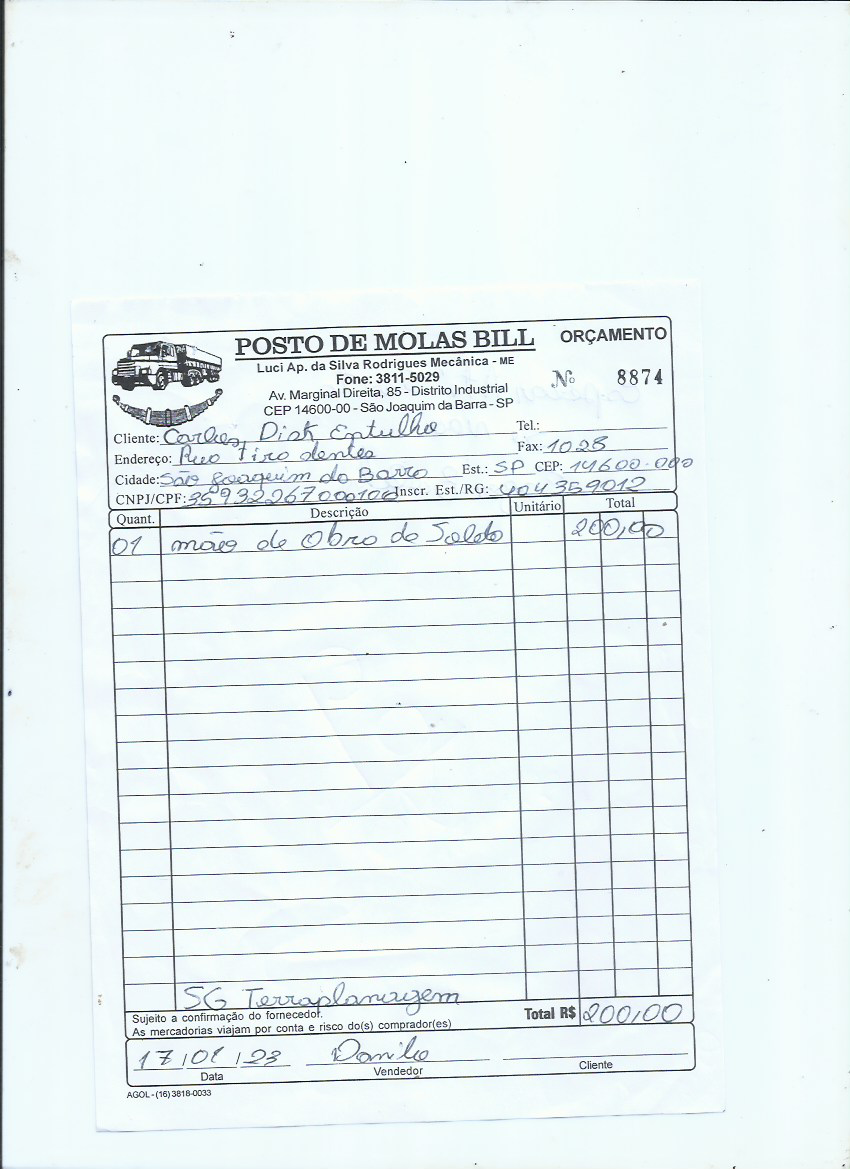 POSTO DE MOLAS BILL
ORÇAMENTO
Luci Ap. da Silva Rodrigues Mecânica - ME
Fone: 3811-5029
Nº 8874
Av. Marginal Direita, 85 - Distrito Industrial
CEP 14600-00 - São Joaquim da Barra - SP
Cliente: Carlos, Disk Entulho Tel.:
Endereço: Rua Tiro dentes Fax: 1028
Cidade: São Joaquim da Barra Est.: SP CEP: 14600-000
CNPJ/CPF: 35932267000106 Inscr. Est./RG: 404359012
Quant. Descrição Unitário Total
01 mão de Obra de Solda 200,00
SG Terraplanagem
Sujeito a confirmação do fornecedor.
As mercadorias viajam por conta e risco do(s) comprador(es)
Total R$ 200,00
17/01/23 Danilo
Data Vendedor Cliente
AGOL - (16) 3818-0033